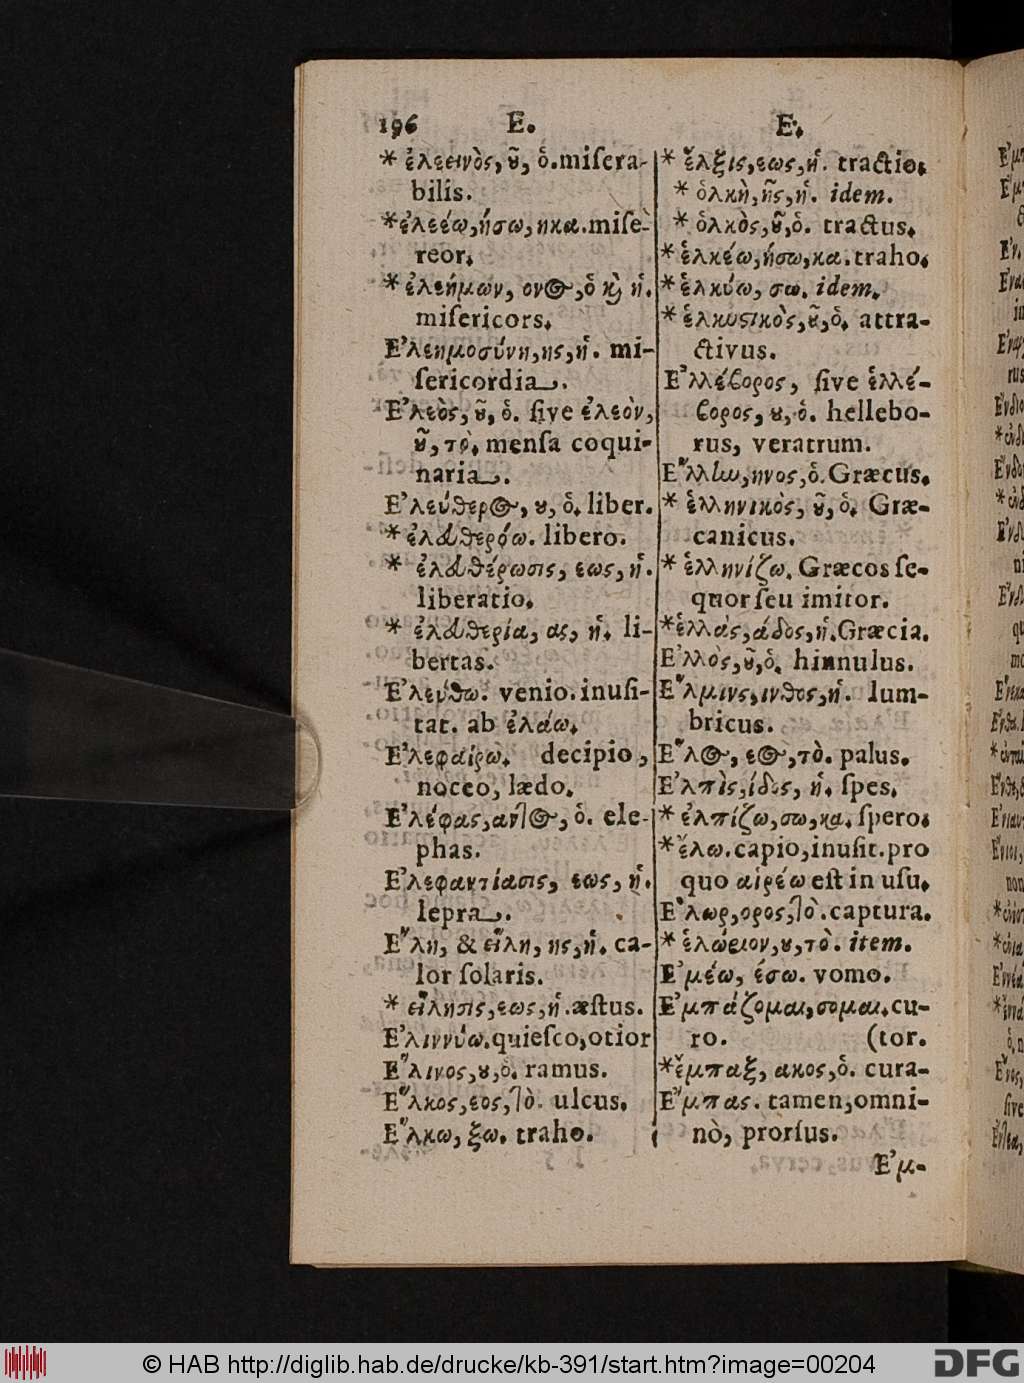 196 E. E.
* ἐλεεινὸς, ȣ͂, ὁ. miſera-
bilis.
* ἐλεέω, ήσω, ηκα. miſe-
reor.
* ἐλεήμων, ονος, ὁ κὶ ἡ.
miſericors.
Ε᾿λεημοσύνη, ης, ἡ. mi-
ſericordia.
Ε᾿λεὸς, ȣ͂, ὁ. ſive ἐλεὸν,
ȣ͂, τὸ. menſa coqui-
naria.
Ε᾿λεύθερος, ȣ, ὁ. liber.
* ἐλευθερόω. libero.
* ἐλευθέρωσις, εως, ἡ.
liberatio.
* ἐλευθερία, ας, ἡ. li-
bertas.
Ε᾿λεύθω. venio. inuſi-
tat. ab ἐλάω.
Ε᾿λεφαίρω. decipio,
noceo, lædo.
Ε᾿λέφας, αντος, ὁ. ele-
phas.
Ε᾿λεφαντίασις, εως, ἡ.
lepra.
Ε῞λη, & εἵλη, ης, ἡ. ca-
lor ſolaris.
* εἵλησις, εως, ἡ. æſtus.
Ε᾿λιννύω. quieſco, otior
Ε῞λινος, ȣ, ὁ. ramus.
Ε῞λκος, εος, τὸ. ulcus.
Ε῞λκω, ξω. traho.
* ἕλξις, εως, ἡ. tractio.
* ὁλκὴ, ῆς, ἡ. idem.
* ὁλκὸς, ȣ͂, ὁ. tractus.
* ἑλκέω, ήσω, κα. traho.
* ἑλκύω, σω. idem.
* ἑλκυϛικὸς, ȣ͂, ὁ. attra-
ctivus.
Ε᾿λλέϐορος, ſive ἑλλέ-
ϐορος, ȣ, ὁ. hellebo-
rus, veratrum.
Ε῞λλην, ηνος, ὁ. Græcus.
* ἑλληνικὸς, ȣ͂, ὁ. Græ-
canicus.
* ἑλληνίζω. Græcos ſe-
quor ſeu imitor.
* ἑλλὰς, άδος, ἡ. Græcia.
Ε᾿λλὸς, ȣ͂, ὁ. hinnulus.
Ε῞λμινς, ινθος, ἡ. lum-
bricus.
Ε῞λος, εος, τὸ. palus.
Ε᾿λπὶς, ίδος, ἡ. ſpes.
* ἐλπίζω, σω, κα. ſpero.
* ἕλω. capio, inuſit. pro
quo αἱρέω eſt in uſu.
Ε῞λωρ, ορος, τὸ. captura.
* ἑλώριον, ȣ, τὸ. item.
Ε᾿μέω, έσω. vomo.
Ε᾿μπάζομαι, σομαι. cu-
ro. (tor.
* ἔμπαξ, ακος, ὁ. cura-
Ε῎μπας. tamen, omni-
nò, prorſus.
Ε᾿μ-
© HAB http://diglib.hab.de/drucke/kb-391/start.htm?image=00204
DFG